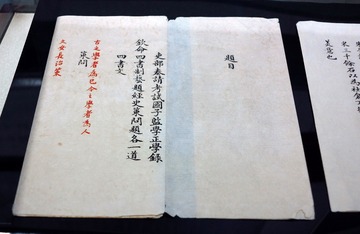 題目
吏部奏請考試國子監學正學錄
欽命四書制藝題經史策問題各一道
四書文
古之學者為己今之學者為人
策問
久安長治策